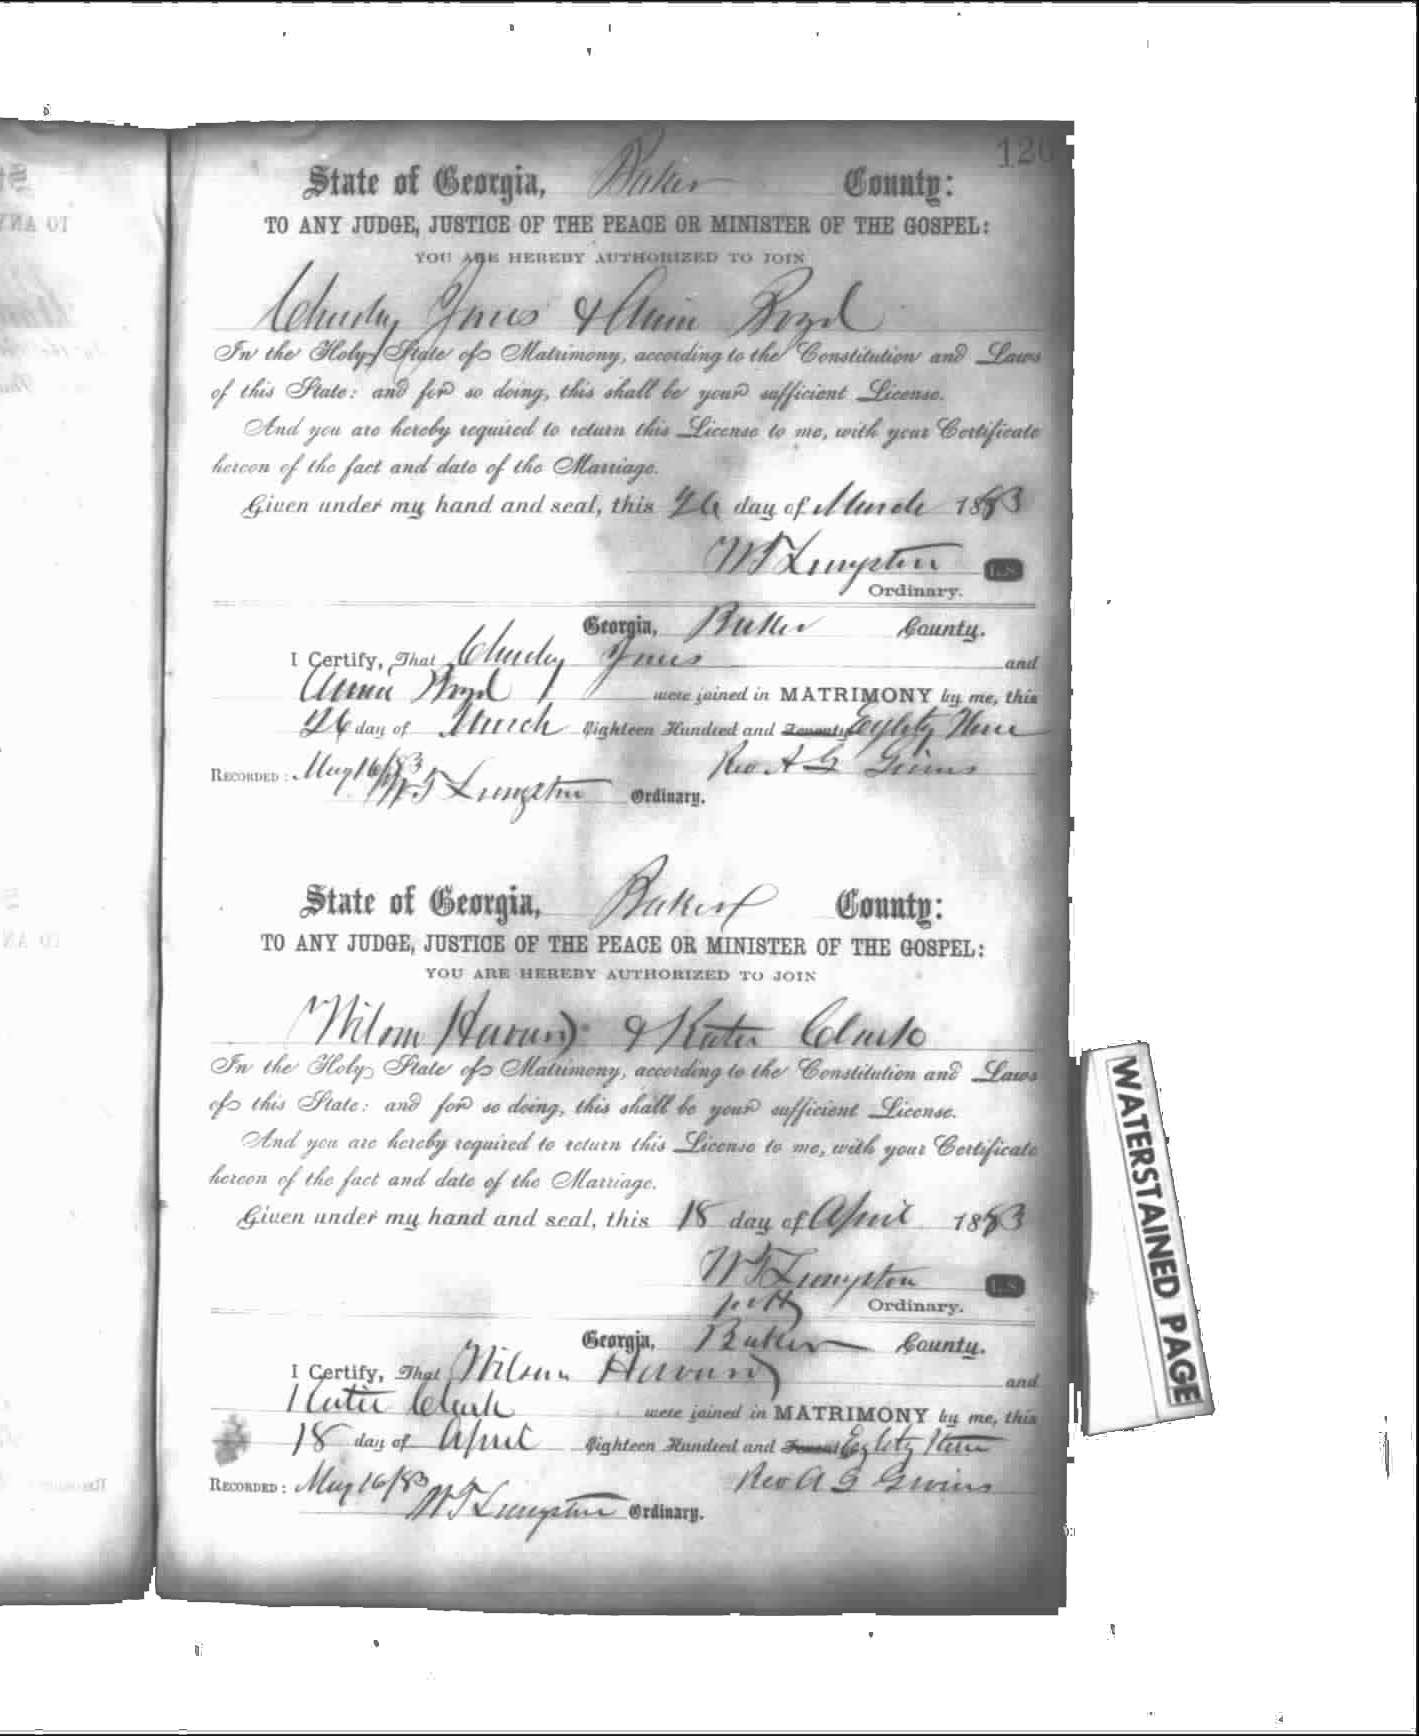 126
State of Georgia, Baker County:
TO ANY JUDGE, JUSTICE OF THE PEACE OR MINISTER OF THE GOSPEL:
YOU ARE HEREBY AUTHORIZED TO JOIN
Charley Jones & Annie Boyd
In the Holy State of Matrimony, according to the Constitution and Laws
of this State: and for so doing, this shall be your sufficient License.
And you are hereby required to return this License to me, with your Certificate
hereon of the fact and date of the Marriage.
Given under my hand and seal, this 26 day of March 1883
W T Livingston L.S.
Ordinary.
Georgia, Baker County.
I Certify, That Charley Jones and
Annie Boyd were joined in MATRIMONY by me, this
26 day of March Eighteen Hundred and Seventy Eighty Three
Rev A G Givins
RECORDED: May 16/83
W.T Livingston Ordinary.
State of Georgia, Baker County:
TO ANY JUDGE, JUSTICE OF THE PEACE OR MINISTER OF THE GOSPEL:
YOU ARE HEREBY AUTHORIZED TO JOIN
Wilson & Katie Clark
In the Holy State of Matrimony, according to the Constitution and Laws
of this State: and for so doing, this shall be your sufficient License.
And you are hereby required to return this License to me, with your Certificate
hereon of the fact and date of the Marriage.
Given under my hand and seal, this 18 day of April 1883
W T Livingston L.S.
Ordinary.
Georgia, Baker County.
I Certify, That Wilson and
Katie Clark were joined in MATRIMONY by me, this
18 day of April Eighteen Hundred and Eighty Three
Rev A G Givins
RECORDED: May 16/83
W T Livingston Ordinary.
WATERSTAINED PAGE